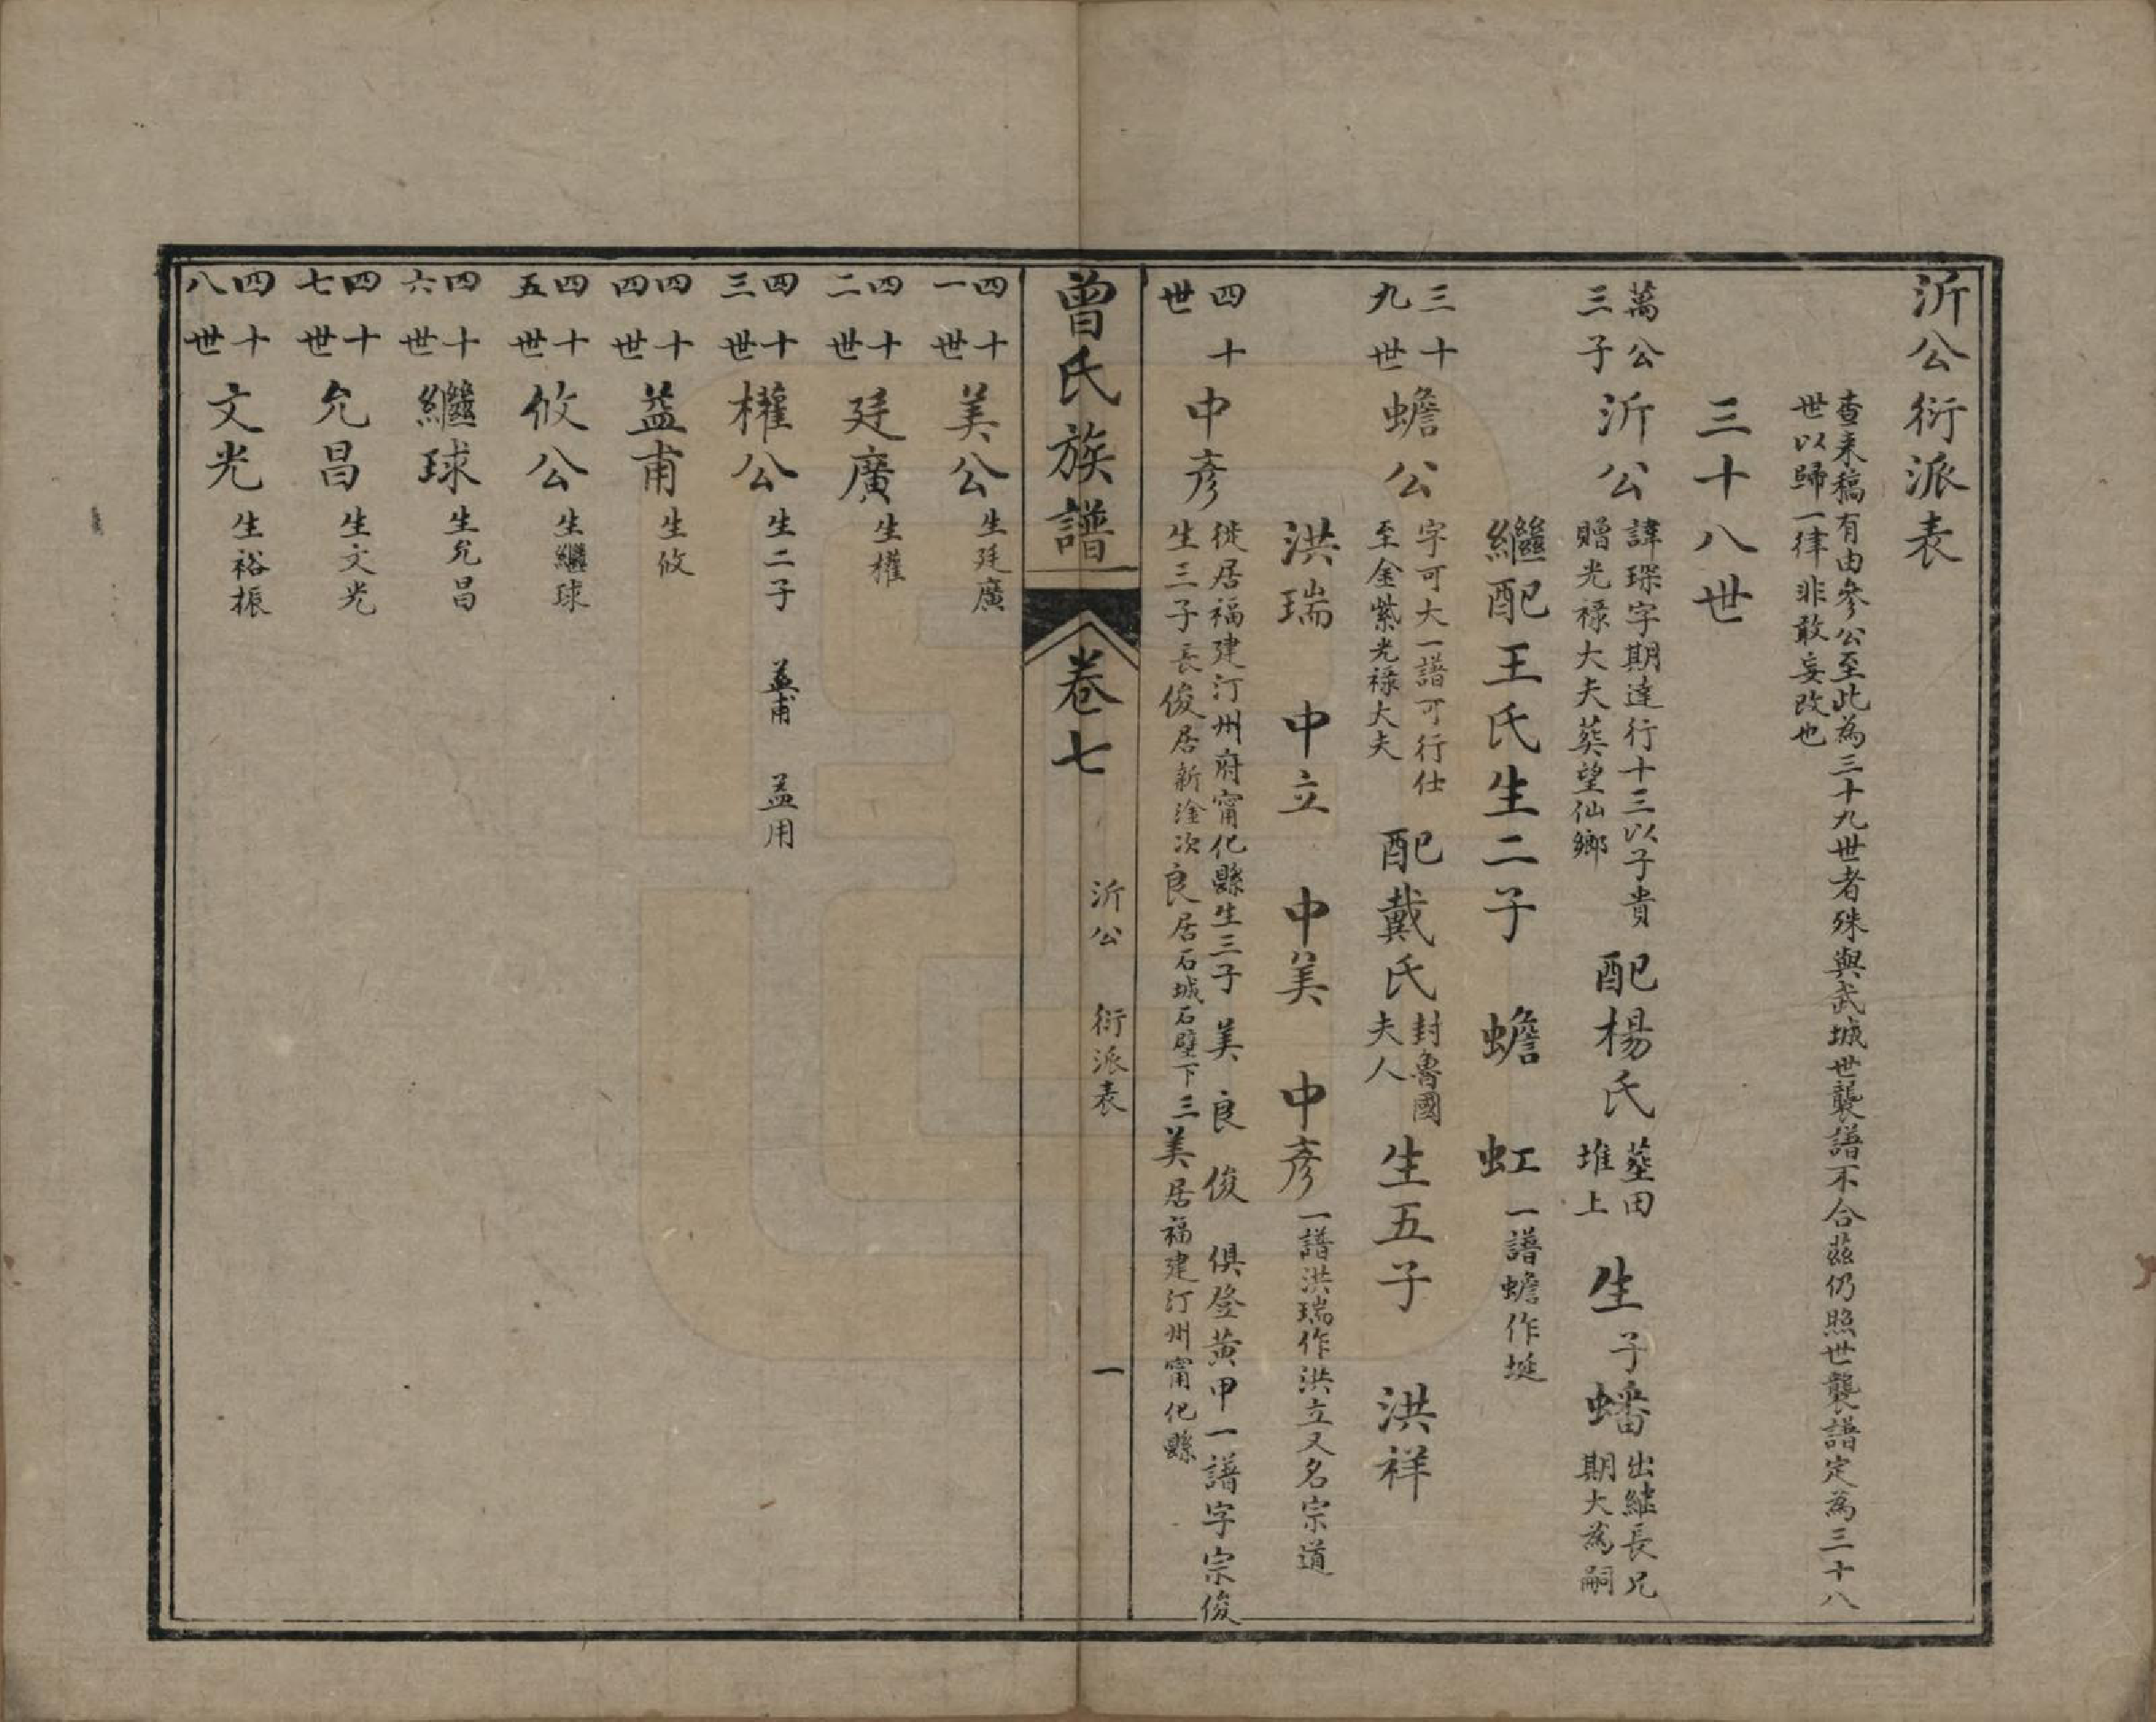 沂公衍派表
查来稿有由參公至此為三十九世者殊與武城世襲譜不合茲仍照世襲譜定為三十八
世以歸一律非敢妄改也
三十八世
萬公三子
沂公
諱琛字期達行十三以子貴
贈光祿大夫葬望仙鄉
配楊氏
葬田
堆上
生子蟠
出継長兄
期大為嗣
繼配王氏生二子 蟾 虹
一譜蟾作埏
三十九世
蟾公
字可大一譜可行仕
至金紫光祿大夫
配戴氏
封魯國
夫人
生五子 洪祥
洪瑞 中立 中美 中彥
一譜洪瑞作洪立又名宗道
四十世
中彥
徙居福建汀州府甯化縣生三子 美 良 俊 俱登黃甲一譜字宗俊
生三子長俊居新淦次良居石城石壁下三美居福建汀州甯化縣
曾氏族譜
卷七
沂公 衍派表
一
四十一世
美公
生廷廣
四十二世
廷廣
生權
四十三世
權公
生二子 益甫 益用
四十四世
益甫
生攸
四十五世
攸公
生繼球
四十六世
繼球
生允昌
四十七世
允昌
生文光
四十八世
文光
生裕振